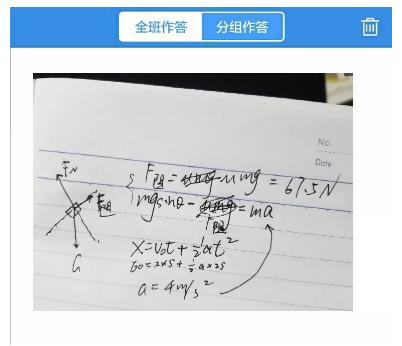 全班作答 分组作答
No.
Date
F阻 = μmg = 67.5N
mgsinθ - F阻 = ma
F_N
F阻
G
X = V₀t + ½at²
60 = 2×5 + ½a×25
a = 4m/s²